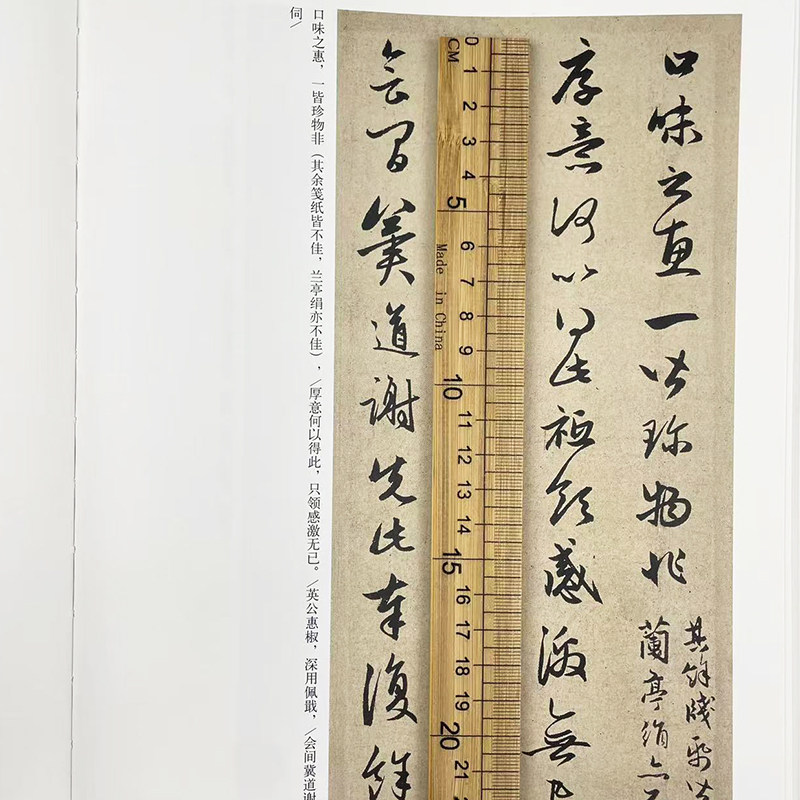 口味之惠一皆珍物非
其餘牋紙皆
蘭亭絹亦不
厚意何以得此祗領感激無
0
CM
1
2
3
4
5
6
7
8
9
10
11
12
13
14
15
16
17
18
19
20
21
Made in China
会间冀道謝先此奉復餘
口味之惠，一皆珍物非（其余笺纸皆不佳，兰亭绢亦不佳），/厚意何以得此，只领感激无已。/英公惠椒，深用佩戢，/会间冀道谢
伺/